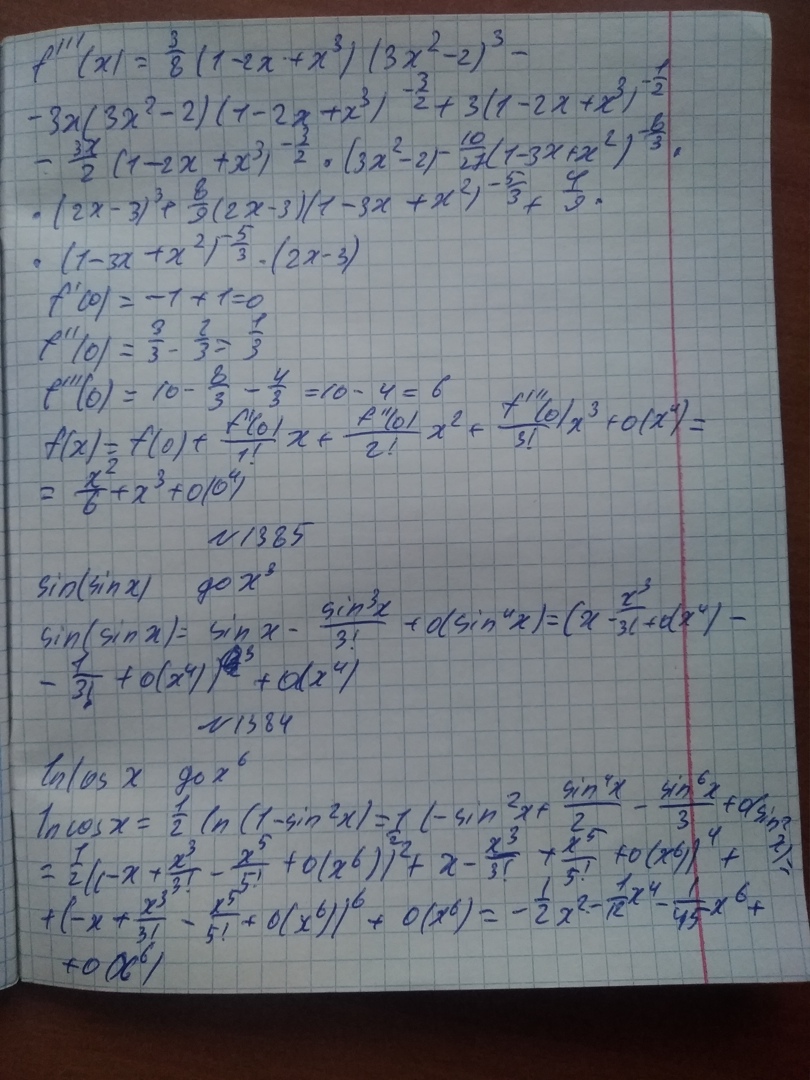 f'''(x) = 3/8 (1-2x+x³) (3x²-2)³ -
-3x(3x²-2)(1-2x+x³)^(-3/2) + 3(1-2x+x³)^(-1/2)
- 3x/2 (1-2x+x³)^(-3/2) · (3x²-2) - 10/27 (1-3x+x²)^(-8/3) ·
· (2x-3)³ + 8/9 (2x-3)(1-3x+x²)^(-5/3) + 4/9 ·
· (1-3x+x²)^(-5/3) · (2x-3)
f'(0) = -1+1=0
f''(0) = 3/3 - 2/3 = 1/3
f'''(0) = 10 - 8/3 - 4/3 = 10 - 4 = 6
f(x) = f(0) + f'(0)/1! x + f''(0)/2! x² + f'''(0)/3! x³ + o(x⁴) =
= x²/6 + x³ + o(0⁴)
№1385
sin(sinx) до x³
sin(sinx) = sin x - sin³x/3! + o(sin⁴x) = (x - x³/3! + o(x⁴) -
- 1/3! + o(x⁴))³ + o(x⁴)
№1384
ln cos x до x⁶
ln cos x = 1/2 ln (1-sin²x) = 1/2 (-sin²x + sin⁴x/2 - sin⁶x/3 + o(sin⁷x)) =
= 1/2 ((-x + x³/3! - x⁵/5! + o(x⁶))² + x - x³/3! + x⁵/5! + o(x⁶))⁴ +
+ (-x + x³/3! - x⁵/5! + o(x⁶))⁶ + o(x⁶) = -1/2 x² - 1/12 x⁴ - 1/45 x⁶ +
+ o(x⁶)